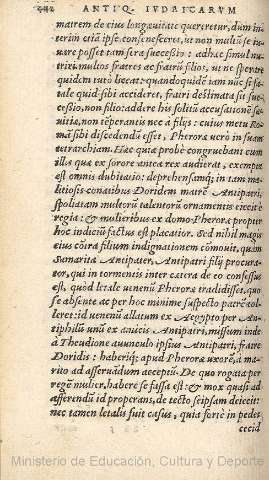 ANTIQ. IVDAICARVM
matrem de eius longæuitate quereretur, dum in-
terim ei tã ipse consenesceret, ut non multũ se iu-
uare posset tam sera successio: adhæc simul nu-
triri multos fratres ac fratrũ filios, ut ne sperare
quidem tutò liceat: quandoquidẽ iam nũc si fa-
tale quid sibi accideret, fratri destinata sit suc-
cessio, non filio: addere his solitã accusationẽ sæ-
uitiæ, non tẽperantis nec à filijs: cuius metu Ro-
mã sibi discedendũ esset, Pheroræ uerò in suam
tetrarchiam. Hæc quia probè congruebant cum
illis quæ ex sorore antea rex audierat, exempta
est omnis dubitatio: deprehensamq; in tam ma-
litiosis conatibus Doridem matrẽ Antipatri,
spoliatam multorũ talentorũ ornamentis eiecit è
regia: & mulieribus ex domo Pheroræ propter
hoc indiciũ factus est placatior. Sed nihil magis
eius cõtra filium indignationem cõmouit, quàm
Samarita Antipater, Antipatri filij procura-
tor, qui in tormentis inter cætera de eo confessus
est, quòd letale uenenũ Pheroræ tradidisset, quo
se absente ac per hoc minime suspecto patrẽ tol-
leret: id uenenũ allatum ex Aegypto per An-
tiphilũ unũ ex amicis Antipatri, missum inde
à Theudione auunculo ipsius Antipatri, fratre
Doridis: haberiq; apud Pheroræ uxorẽ, à ma-
rito ad asseruãdum acceptũ. De quo rogata per
regẽ mulier, habere se fassa est: & mox quasi ad
afferendũ id properans, de tecto seipsam deiecit:
nec tamen letalis fuit casus, quia fortè in pedes
cecid
Ministerio de Educación, Cultura y Deporte